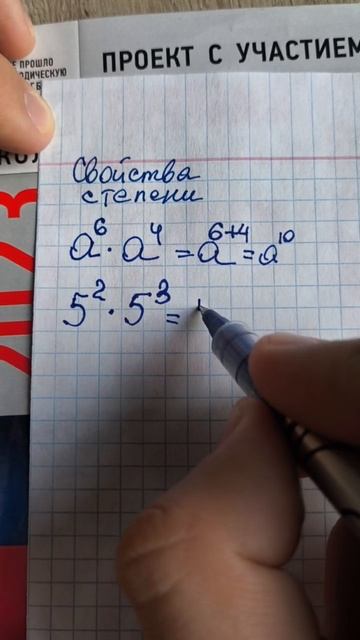 Е ПРОШЛО
ОДИЧЕСКУЮ
ПРОЕКТ С УЧАСТИЕМ
2023
Свойства
степени
a⁶ · a⁴ = a⁶⁺⁴ = a¹⁰
5² · 5³ =